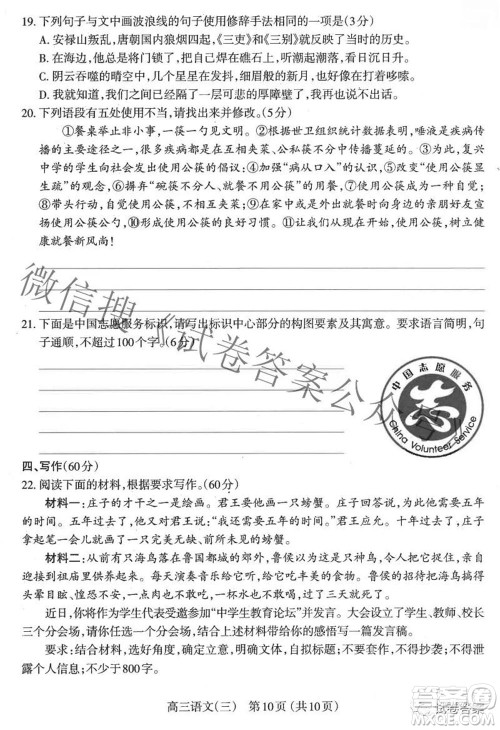 19. 下列句子与文中画波浪线的句子使用修辞手法相同的一项是(3分)
A. 安禄山叛乱,唐帝国内狼烟四起,《三吏》和《三别》就是其历史反映。
B. 在海边,他已不再是自己,而是把自己焊在礁石上,听潮起潮落,看日落日出。
C. 阴云吞噬的晴空中,几只麻雀吱吱发抖,细眉般的新月,也不时打着哆嗦。
D. 我知道,我们之间已经隔了一层可悲的厚障壁了,我也说不出话。
20. 下列语段有五处使用不当,请找出来并修改。(5分)
①餐桌举止非小事,一筷一勺见文明。②根据世卫组织统计的数据表明,唾液是疾病传
播的主要途径之一,很多疾病都是在互相夹菜、口口相传中传播蔓延的。③因此,复兴
中学的学生向社会发出使用公筷的倡议;④强加“病从口入”的认识,⑤实践“使用公筷显
生疏”的观念,⑥摒弃“碗筷不分人、就餐不分筷”的习惯,⑦使用公筷成为一种自觉;⑧
带头行动,自己在与家人或外出就餐中,使用公筷公勺,不互相夹菜,⑨向家人和亲朋好友宣
扬“使用公筷公勺”的意义,⑩形成使用公筷的良好习惯。⑪让我们从使用公筷开始,树立健
康就餐新风尚!
21. 下面是中国志愿服务标识,请写出标识中心部分的构图要素及其寓意。要求语言简明,句
子通顺,不超过100个字。(6分)
中国志愿服务
China Volunteer Service
四、写作(60分)
22. 阅读下面的材料,根据要求写作。(60分)
材料一:庄子的才干之一是绘画。君王要他画一只螃蟹。庄子回答说,为此他需要五年
的时间。五年过去了,他又对君王说:“我还需要五年时间。”君王应允了。十年结束时,庄子
拿起笔一会儿就画出了一只完美无缺的、前所未见的螃蟹。
材料二:从前有一只海鸟落在鲁国都城的郊外,鲁侯以为神鸟,令人把它捉来,亲自把它
迎进祖庙里供养起来。每天演奏音乐给它听,安排丰盛的筵席给它吃。鲁侯的招待把海鸟搞得
头晕目眩,惶恐不安,一点儿肉也不敢吃,一杯水也不敢喝,过了三天就死了。
近日,你将作为学生代表受邀参加“中学生教育论坛”并发言。大会设了学生、教师、校长
三个分会场,请你任选一个分会场,结合上述材料带给你的感悟写一篇发言稿。
要求:结合材料,自拟标题,选好角度,确定立意;不要套作,不得抄袭;不得泄
露个人信息;不少于800字。
高三语文(三) 第10页(共10页)
微信搜《试卷答案公众号》
试卷答案